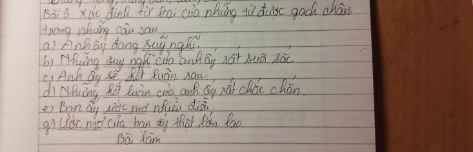 Bài 3 Xác định từ loại của những từ được gạch chân
trong những câu sau
a) Anh ấy đang suy nghĩ.
b) Những suy nghĩ của anh ấy rất sâu sắc
c) Anh ấy sẽ kết luận sau
d) Những kết luận của anh ấy rất chắc chắn.
e) Bạn ấy ước mơ nhiều điều
g) Ước mơ của bạn ấy thật lớn lao
Bài làm